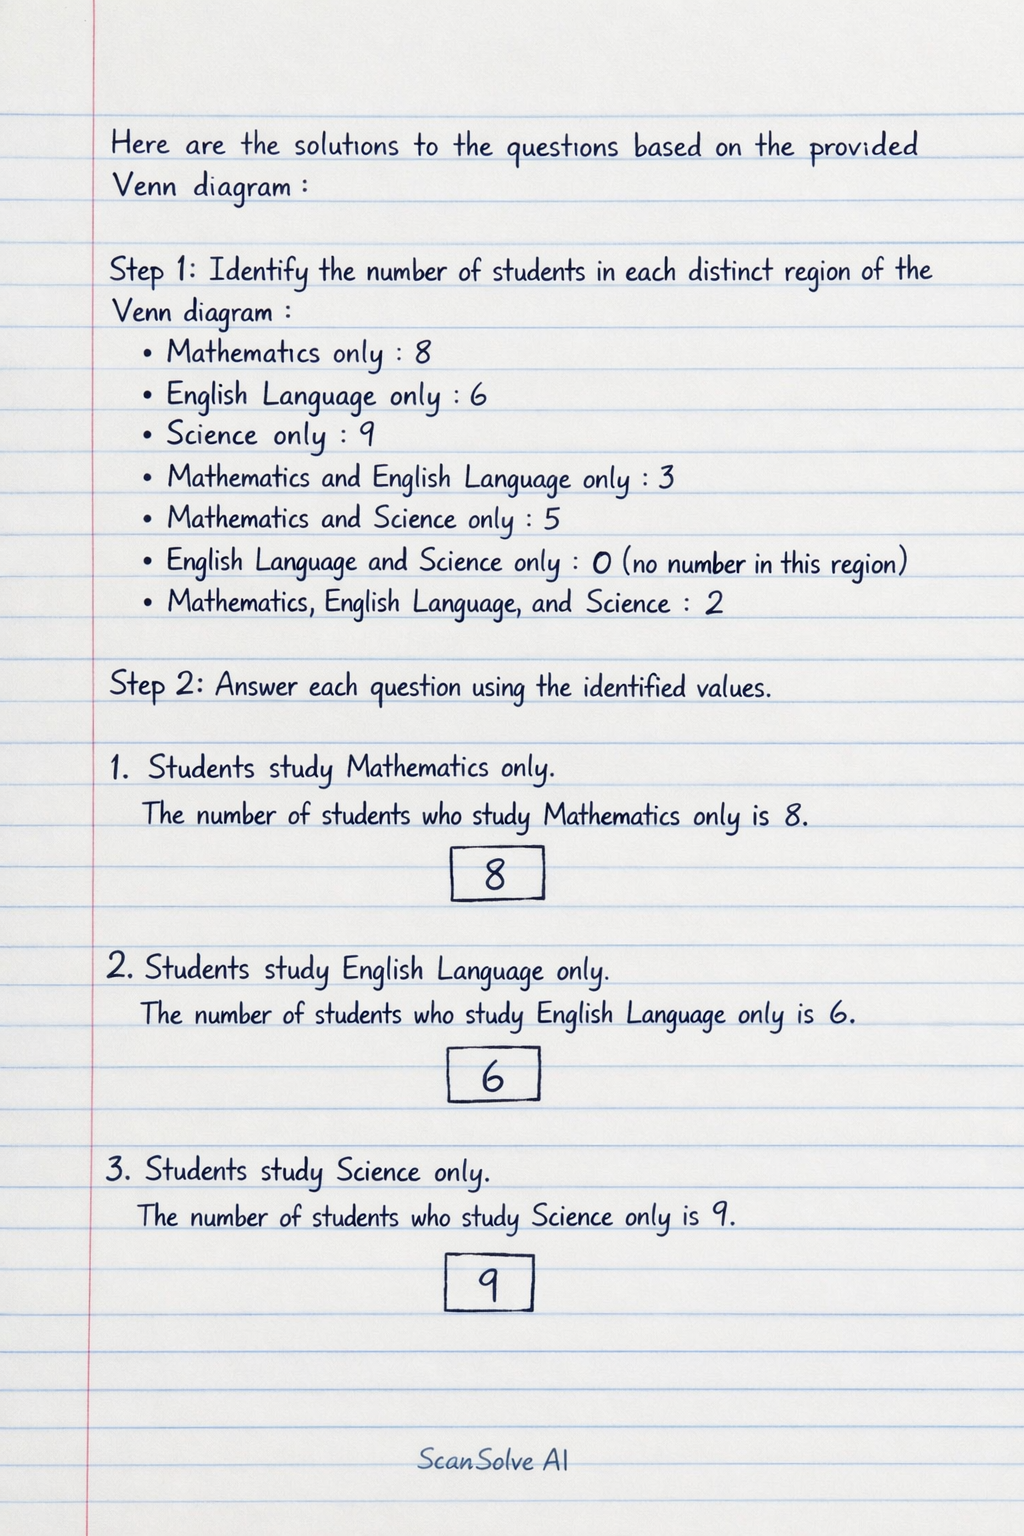 Here are the solutions to the questions based on the provided
Venn diagram :
Step 1: Identify the number of students in each distinct region of the
Venn diagram :
• Mathematics only : 8
• English Language only : 6
• Science only : 9
• Mathematics and English Language only : 3
• Mathematics and Science only : 5
• English Language and Science only : 0 (no number in this region)
• Mathematics, English Language, and Science : 2
Step 2: Answer each question using the identified values.
1. Students study Mathematics only.
The number of students who study Mathematics only is 8.
8
2. Students study English Language only.
The number of students who study English Language only is 6.
6
3. Students study Science only.
The number of students who study Science only is 9.
9
ScanSolve AI